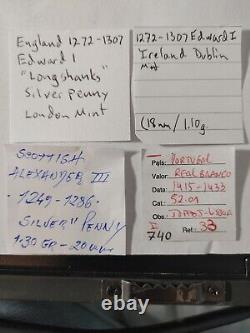 England 1272-1307
Edward I
"Longshanks"
Silver Penny
London Mint
1272-1307 Edward I
Ireland Dublin
Mint
(18mm/1.10g
SCOTTISH
ALEXANDER III
-1249-1286-
SILVER" PENNY
1.30 GR - 20 mm
País: PORTUGAL
Valor: REAL BRANCO
Data: 1415-1433
Cat.: 52.01
Obs.:
Ref.: 33
740